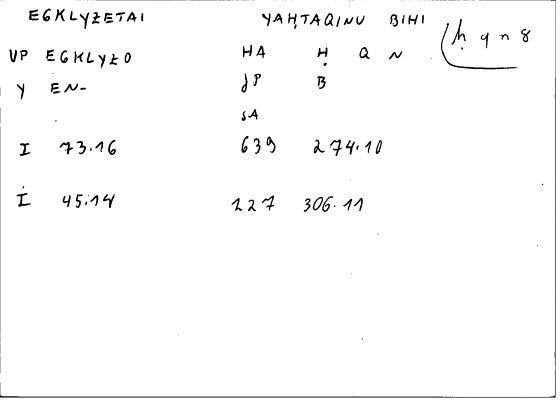 EGKLYŻETAI YAḤTAQINU BIHI ḥ q n 8
VP EGKLYŻO HA Ḥ Q N
Y EN- JP B
SA
I 73.16 639 274.10
İ 45.14 227 306.11